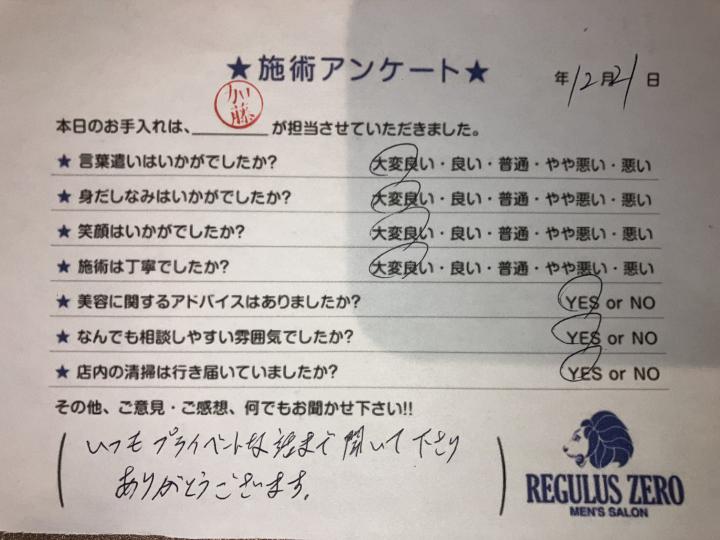 ★施術アンケート★
年12月21日
本日のお手入れは、加藤が担当させていただきました。
★ 言葉遣いはいかがでしたか? 大変良い・良い・普通・やや悪い・悪い
★ 身だしなみはいかがでしたか? 大変良い・良い・普通・やや悪い・悪い
★ 笑顔はいかがでしたか? 大変良い・良い・普通・やや悪い・悪い
★ 施術は丁寧でしたか? 大変良い・良い・普通・やや悪い・悪い
★ 美容に関するアドバイスはありましたか? YES or NO
★ なんでも相談しやすい雰囲気でしたか? YES or NO
★ 店内の清掃は行き届いていましたか? YES or NO
その他、ご意見・ご感想、何でもお聞かせ下さい!!
いつもプライベートな話まで聞いて下さり
ありがとうございます。
REGULUS ZERO
MEN'S SALON